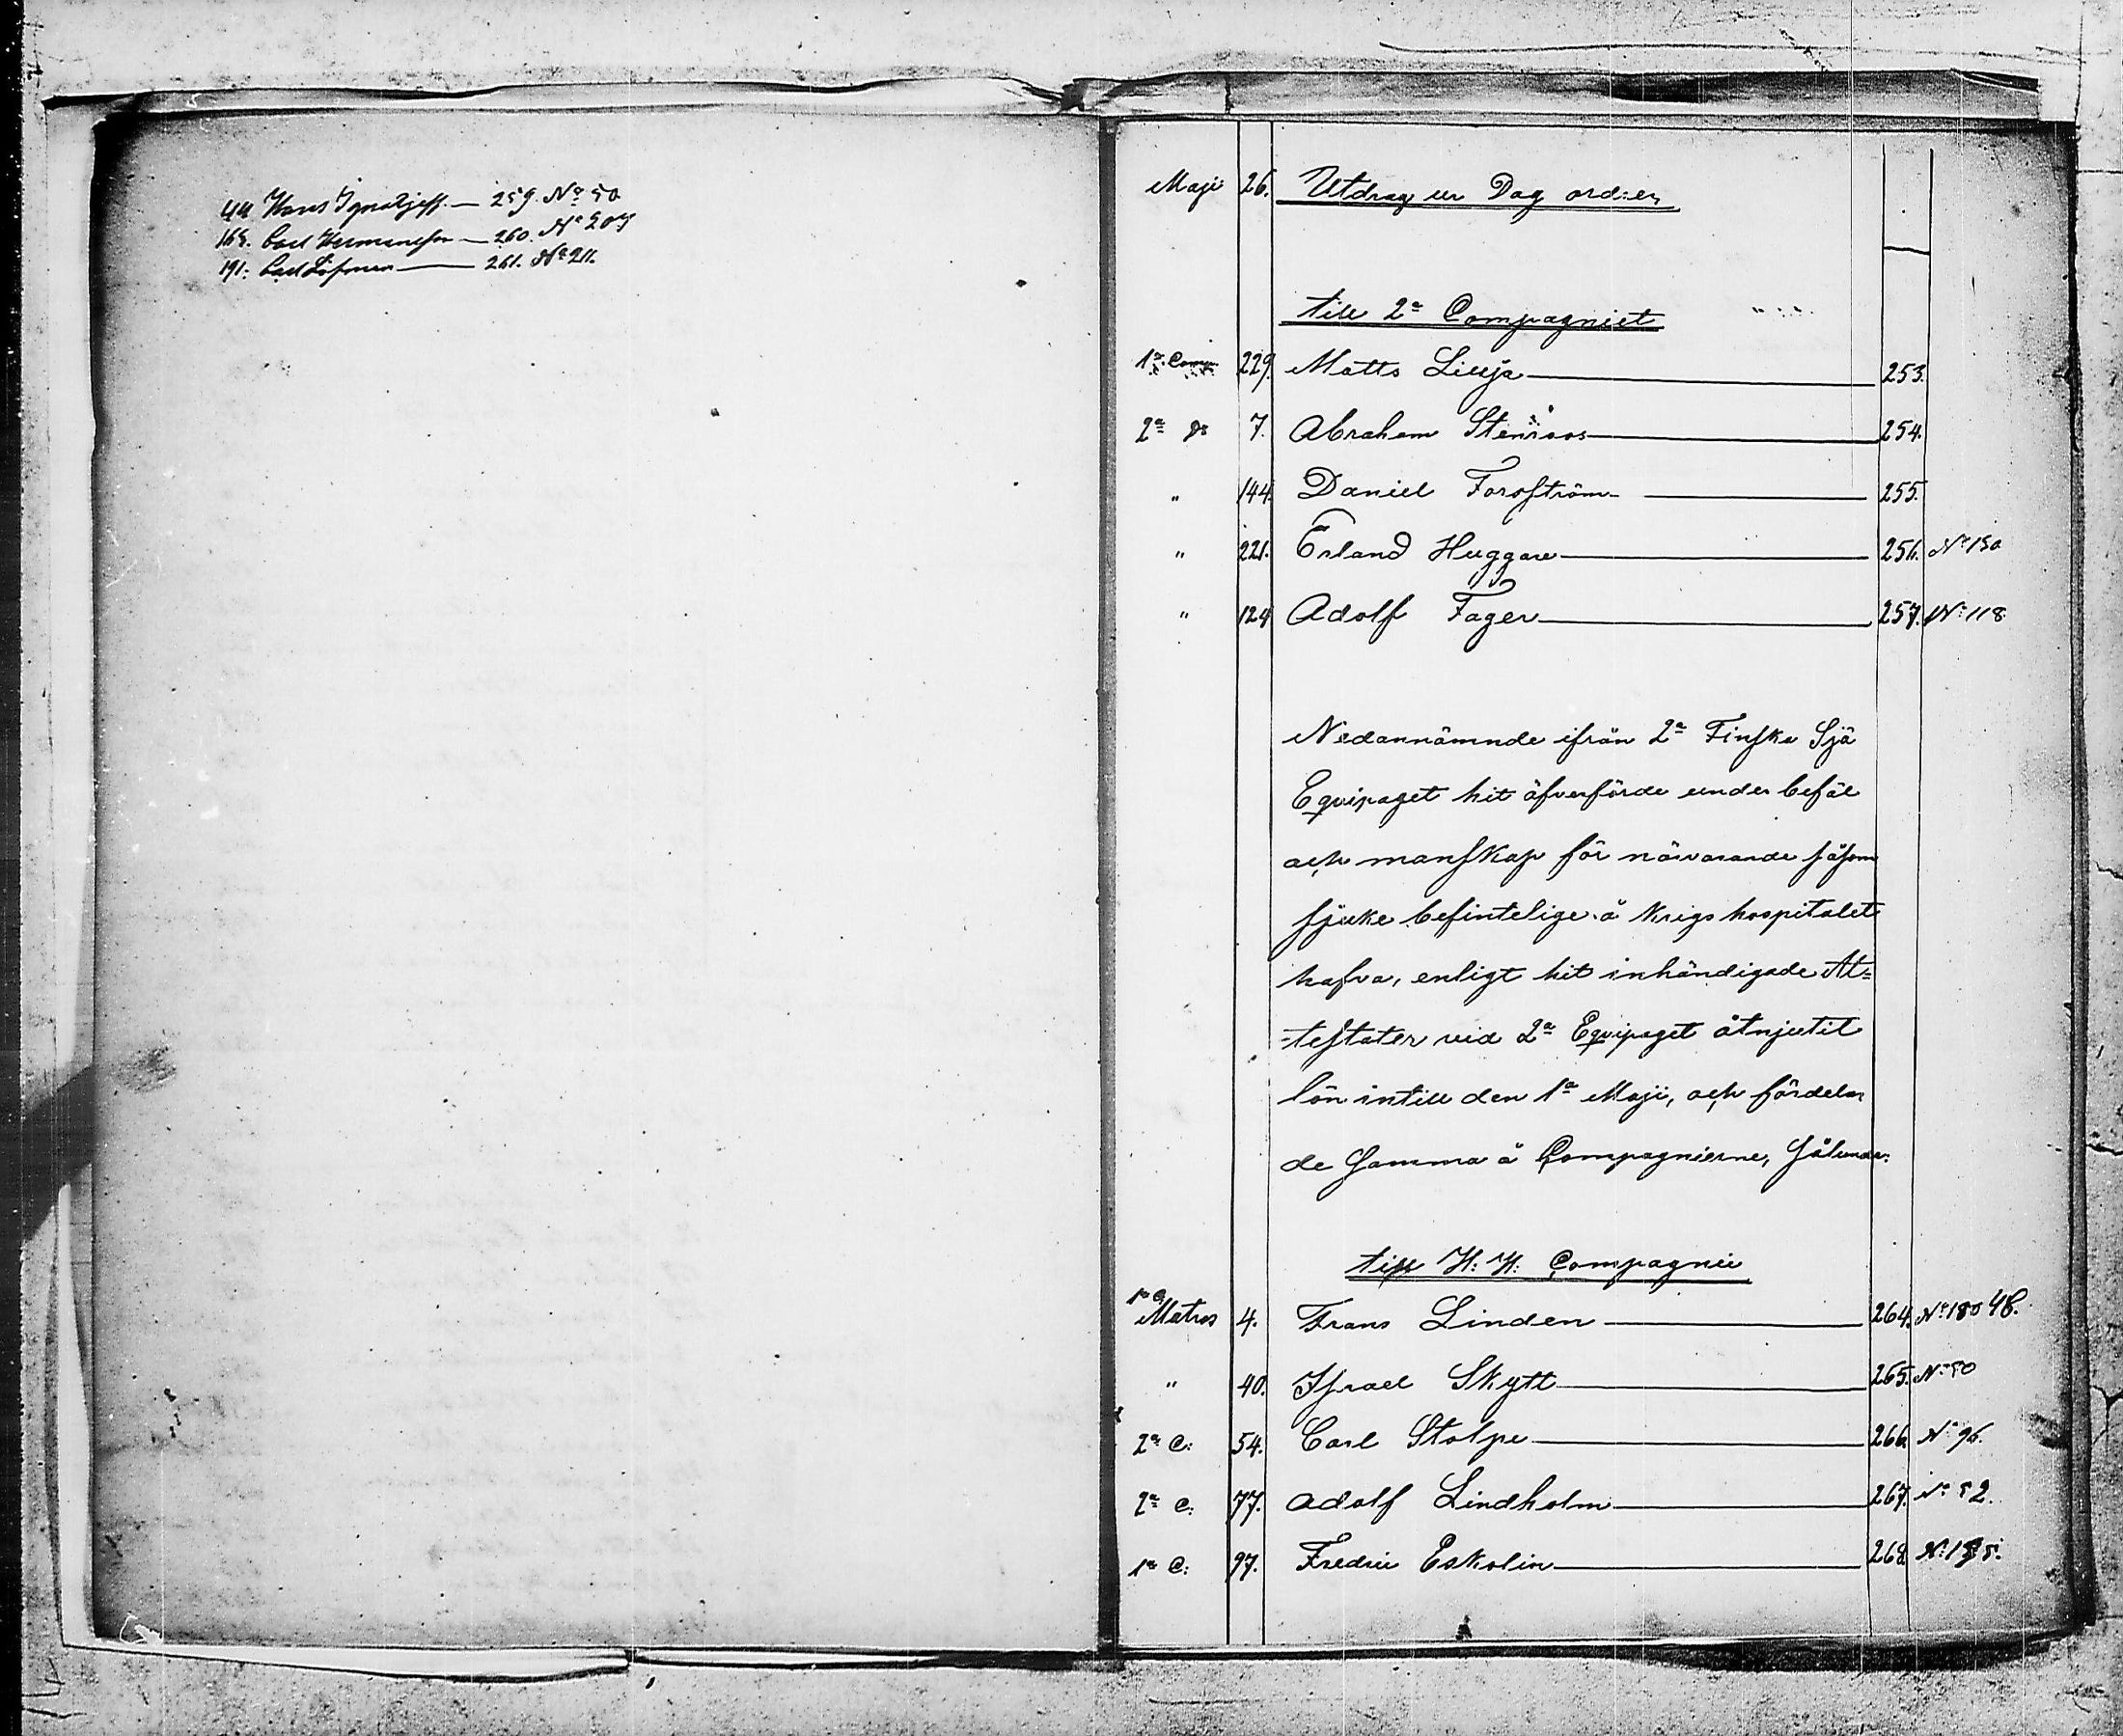 44 Hans Ignatjeff. — 259. No 50
165. Carl Hermansson — 260. No 207
191. Carl Löfman — 261. No 211.
Maji 26. Utdrag ur Dag ord:en
till 2a Compagniet
1a Comp 229. Matts Lilja 253.
2a do 7. Abraham Stenroos 254.
" 144. Daniel Forsström 255.
" 221. Erland Huggare 256. No 150
" 124 Adolf Fager 257. No 118
Nedannämnde ifrån 2a Finska Sjö
Equipaget hit öfverförde under befäl
och manskap för närvarande såsom
sjuke befintelige å Krigs hospitalet
hafva, enligt hit inhändigade At=
=testater vid 2a Equipaget åtnjutit
lön intill den 1a Maji, och fördelas
de Samma å Compagnierne, Sålunda:
till H. H. Compagnie
1a C. Matros 4. Frans Linden 264. No 180 48.
" 40. Israel Skytt 265. No 50
2a C: 54. Carl Stolpe 266. No 96.
2a C: 77. Adolf Lindholm 267. No 52.
1a C: 97. Fredric Eskolin 268. No 195.